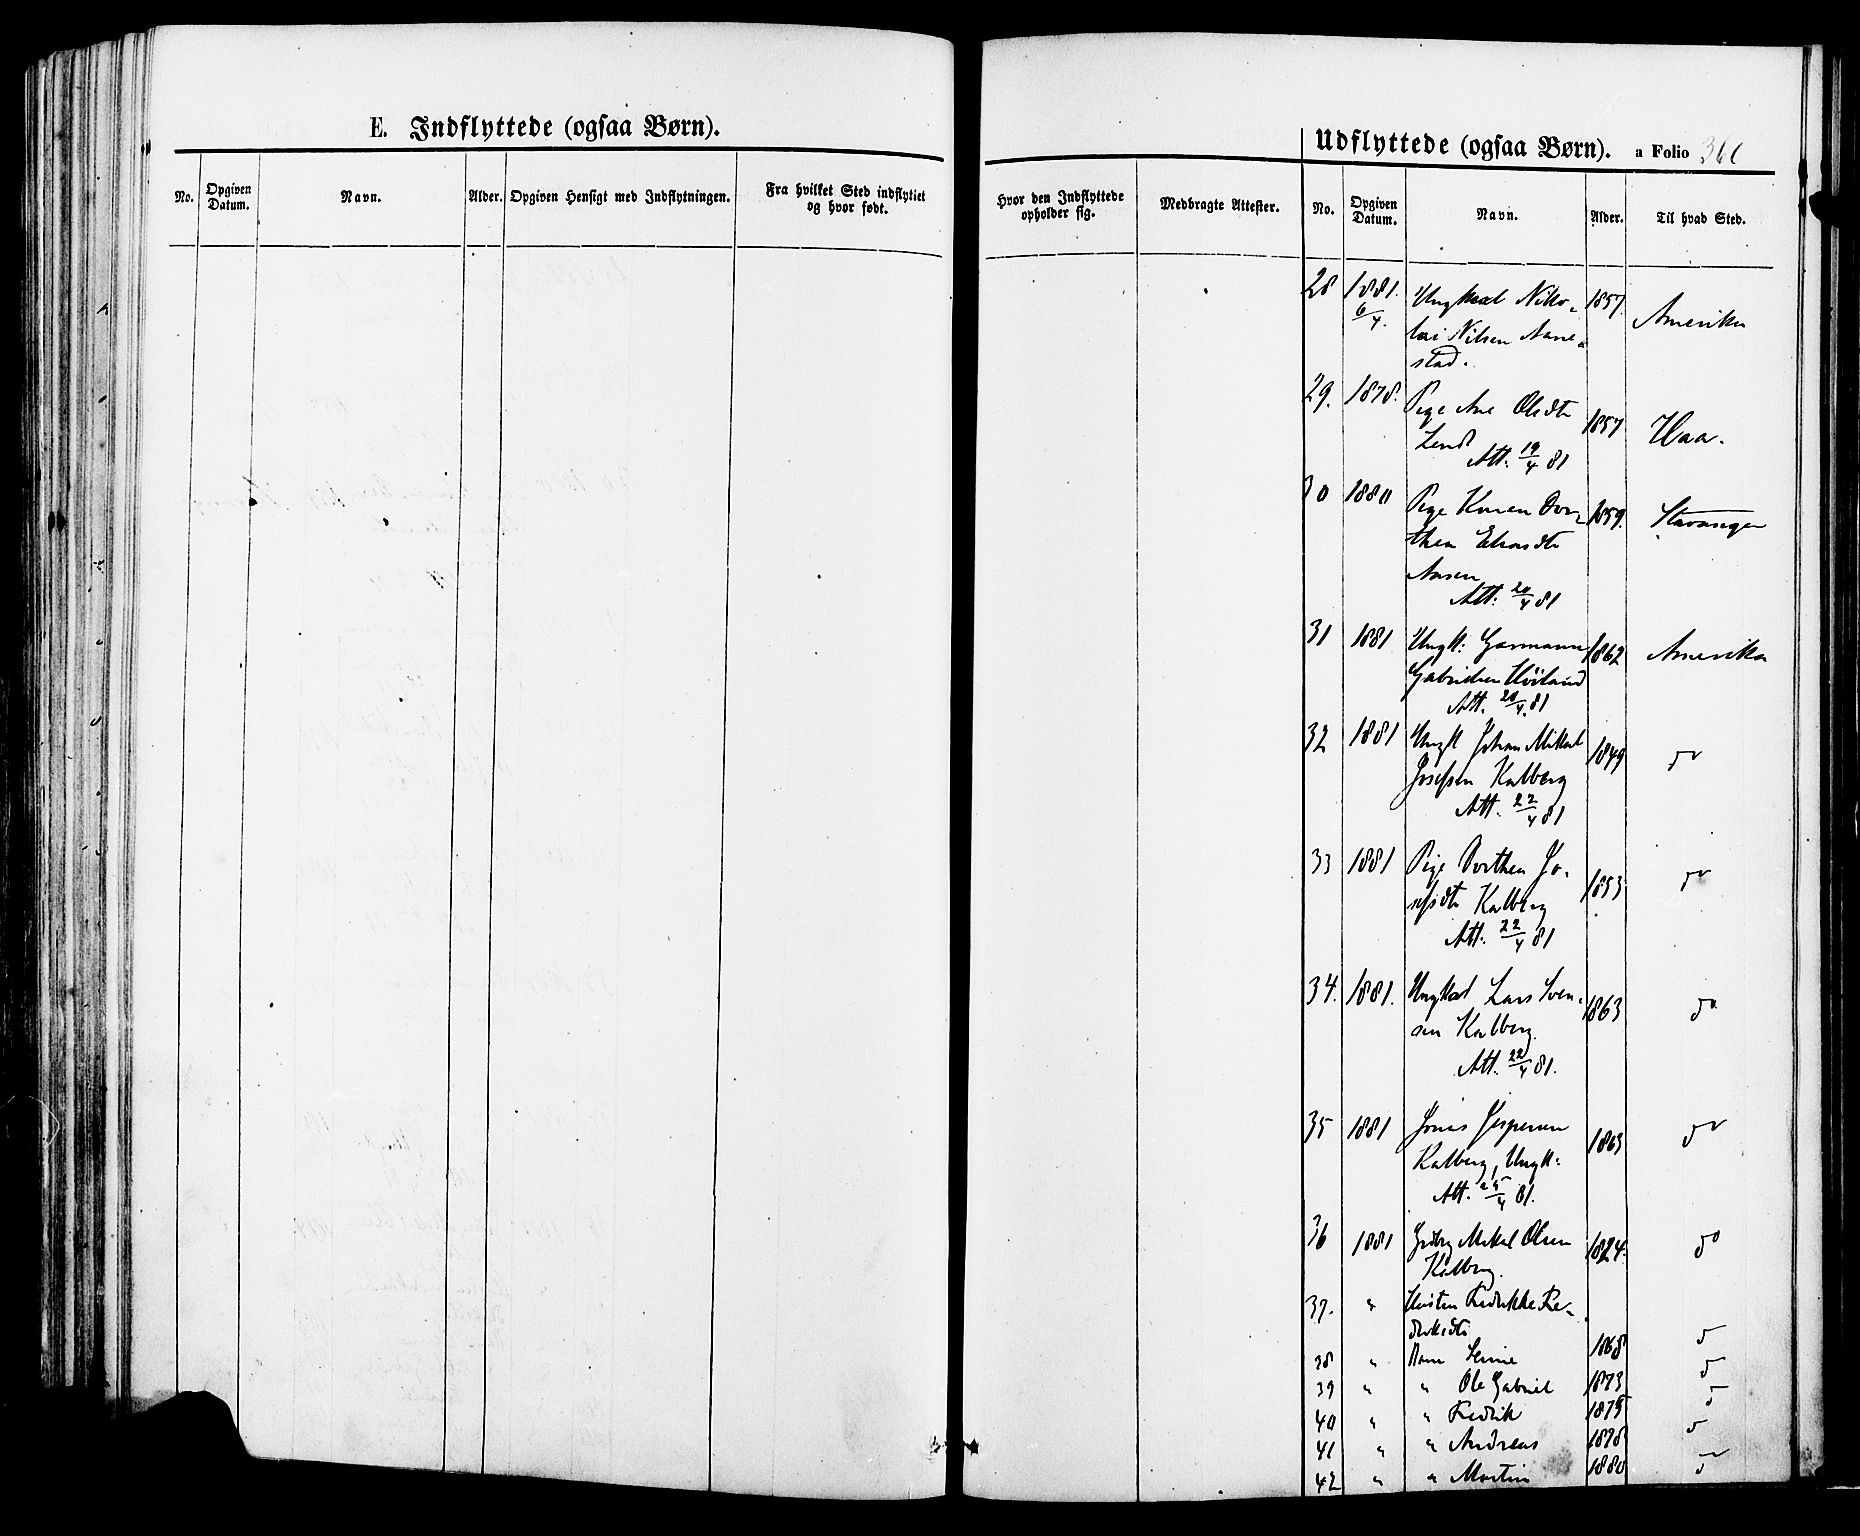 E. Indflyttede (ogsaa Børn).
No. Opgiven Datum. Navn. Alder. Opgiven Hensigt med Indflytningen. Fra hvilket Sted indflyttet og hvor født.
Udflyttede (ogsaa Børn). a Folio 360
Hvor den Indflyttede opholder sig. Medbragte Attester. No. Opgiven Datum. Navn. Alder. Til hvad Sted.
28 1881. Ungkarl Niko- 1857. Amerika
6/4. lai Nilsen Aane-
stad.
29. 1878. Pige Ane Olsdtr 1857 Haa.
Lend
Att: 19/4 81
30 1880 Pige Karen Dor- 1859. Stavanger
thea
Aasen
Att: 20/4 81
31 1881 Ungk: Garmann 1862 Amerika
Gabrielsen Höiland
Att. 20/4. 81
32 1881 Ungk Johan Mikal 1849 do
Josefsen Kalberg
Att. 22/4 81
33 1881 Pige Dorthea Jo- 1853 do
sefsdtr Kalberg
Att. 22/4 81
34. 1881. Ungkarl Lars Sven- 1863 do
sen Kalberg.
Att. 22/4 81.
35 1881 Jonas Jespersen 1863 do
Kalberg, Ungk:
Att. 25/4 81.
36 1881 Mikal Olsen 1824. do
Kalberg.
37. " Hustru Fredrikke Fre-
driksdtr
38 " Barn 1868 do
39 " " Ole Gabriel 1873 do
40 " " Fredrik 1875 do
41 " " Andreas 1878 do
42 " " Martin 1880 do